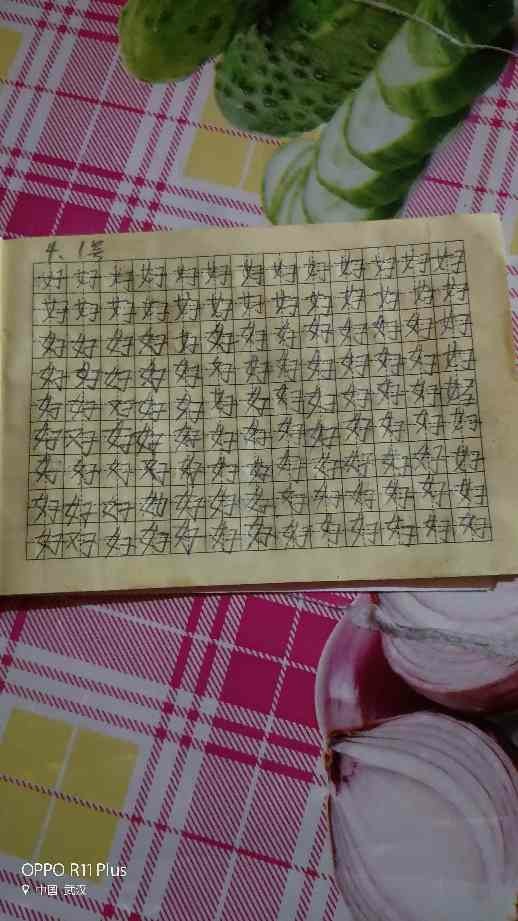 4、1号
好好好好好好好好好好好好好
好好好好好好好好好好好好好
好好好好好好好好好好好好好
好好好好好好好好好好好好好
好好好好好好好好好好好好好
好好好好好好好好好好好好好
好好好好好好好好好好好好好
好好好好好好好好好好好好好
好好好好好好好好好好好好好
OPPO R11 Plus
中国·武汉